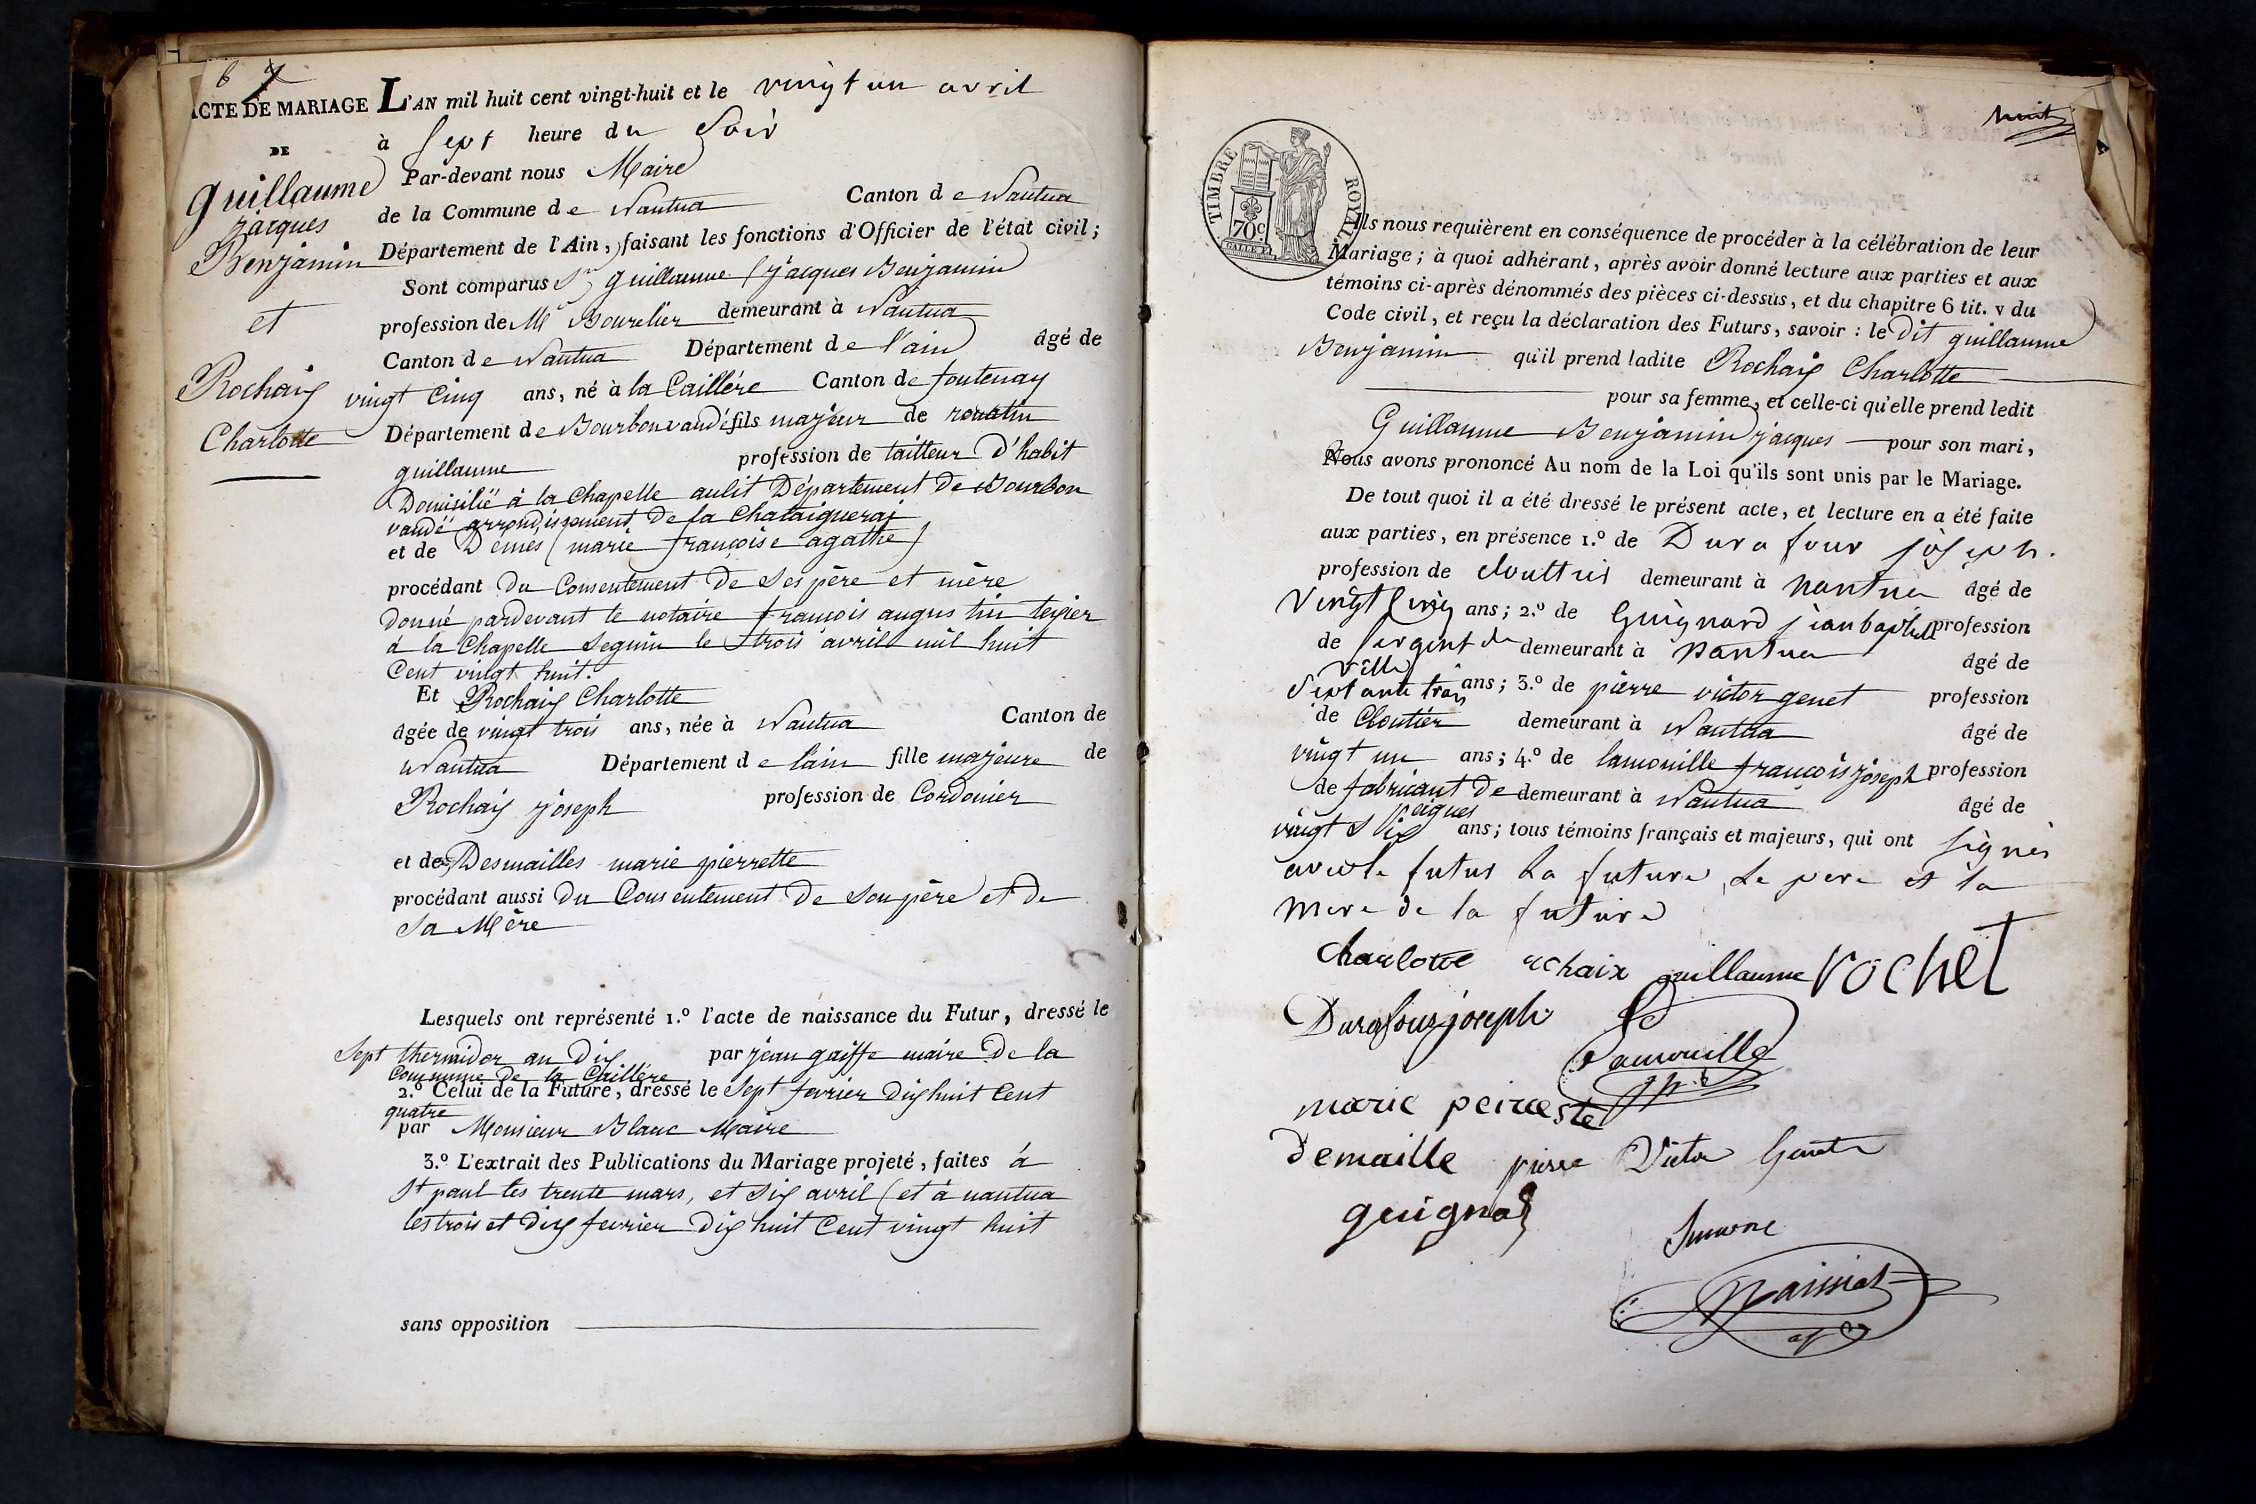 6 7
ACTE DE MARIAGE L'AN mil huit cent vingt-huit et le vingt un avril
DE
à sept heure du Soir
Guillaume
jacques
Benjamin
et
Rochaix
Charlotte
Par-devant nous Maire
de la Commune de Nantua Canton de Nantua
Département de l'Ain, faisant les fonctions d'Officier de l'état civil;
Sont comparus Sr guillaume (jacques Benjamin
profession de Me Bourelier demeurant à Nantua
Canton de Nantua Département de l'ain âgé de
vingt Cinq ans, né à la Caillère Canton de fontenay
Département de Bourbonvandé fils majeur de
guillaume profession de tailleur d'habit
Domicilié à la Chapelle aulit Département de Bourbon
vandé arrondissement de la Chataigneraj
et de Démés (marie françoise agathe)
procédant du Consentement de Ses père et mère
donné pardevant le notaire françois augustin texier
à la Chapelle Seguin le trois avril mil huit
Cent vingt huit.
Et Rochaix Charlotte
âgée de vingt trois ans, née à Nantua Canton de
Nantua Département de l'ain fille majeure de
Rochaix joseph profession de Cordonier
et de Desmailles marie pierrette
procédant aussi du Consentement de Son père et de
Sa Mère
Lesquels ont représenté 1.º l'acte de naissance du Futur, dressé le
Sept thermidor an Dix par jean gaiffe maire de la
Commune de la Caillère
2.º Celui de la Future, dressé le Sept fevrier Dix huit Cent
quatre
par Monsieur Blanc Maire
3.º L'extrait des Publications du Mariage projeté, faites à
St paul les trente mars, et Six avril (et à nantua
les trois et Dix fevrier Dix huit Cent vingt huit
sans opposition
huit
TIMBRE ROYAL
70c
Ils nous requièrent en conséquence de procéder à la célébration de leur
Mariage; à quoi adhérant, après avoir donné lecture aux parties et aux
témoins ci-après dénommés des pièces ci-dessus, et du chapitre 6 tit. v du
Code civil, et reçu la déclaration des Futurs, savoir: le Dit guillaume
Benjamin qu'il prend ladite Rochaix Charlotte
pour sa femme, et celle-ci qu'elle prend ledit
Guillaume Benjamin jacques pour son mari,
Nous avons prononcé Au nom de la Loi qu'ils sont unis par le Mariage.
De tout quoi il a été dressé le présent acte, et lecture en a été faite
aux parties, en présence 1.º de Durafour joseph.
profession de cloutier demeurant à nantua âgé de
vingt cinq ans; 2.º de Guignard jean baptiste profession
de sergent de demeurant à nantua âgé de
ville
Sextante trois ans; 3.º de pierre victor genet profession
de Cloutier demeurant à Nantua âgé de
vingt un ans; 4.º de lamouille françois joseph profession
de fabricant de demeurant à Nantua âgé de
peignes
vingt Six ans; tous témoins français et majeurs, qui ont signés
avec le futur la future, le pere et la
mere de la future
charlotte rchaix guillaume rochet
Durafour joseph
Lamouille
marie peirreste
Demaille pierre Victor Genet
guignar